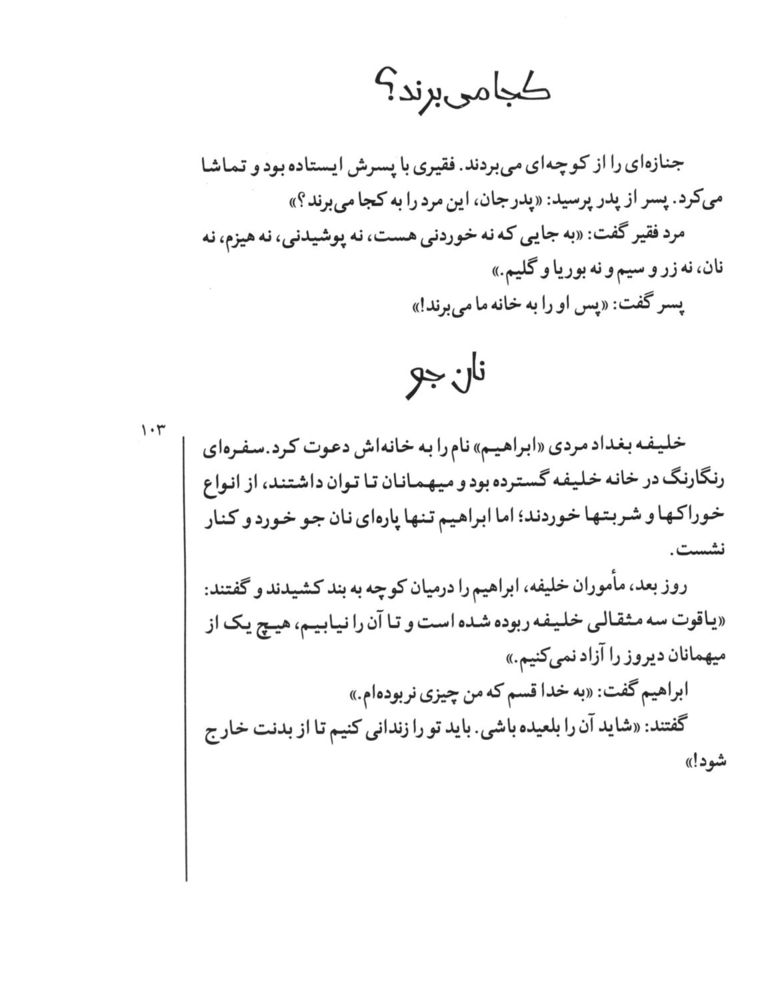 کجا می‌برند؟
جنازه‌ای را از کوچه‌ای می‌بردند. فقیری با پسرش ایستاده بود و تماشا
می‌کرد. پسر از پدر پرسید: «پدرجان، این مرد را به کجا می‌برند؟»
مرد فقیر گفت: «به جایی که نه خوردنی هست، نه پوشیدنی، نه هیزم، نه
نان، نه زر و سیم و نه بوریا و گلیم.»
پسر گفت: «پس او را به خانه ما می‌برند!»
نان جو
۱۰۳
خلیفه بغداد مردی «ابراهیم» نام را به خانه‌اش دعوت کرد.سفره‌ای
رنگارنگ در خانه خلیفه گسترده بود و میهمانان تا توان داشتند، از انواع
خوراکها و شربتها خوردند؛ اما ابراهیم تنها پاره‌ای نان جو خورد و کنار
نشست.
روز بعد، مأموران خلیفه، ابراهیم را درمیان کوچه به بند کشیدند و گفتند:
«یاقوت سه مثقالی خلیفه ربوده شده است و تا آن را نیابیم، هیچ یک از
میهمانان دیروز را آزاد نمی‌کنیم.»
ابراهیم گفت: «به خدا قسم که من چیزی نربوده‌ام.»
گفتند: «شاید آن را بلعیده باشی. باید تو را زندانی کنیم تا از بدنت خارج
شود!»